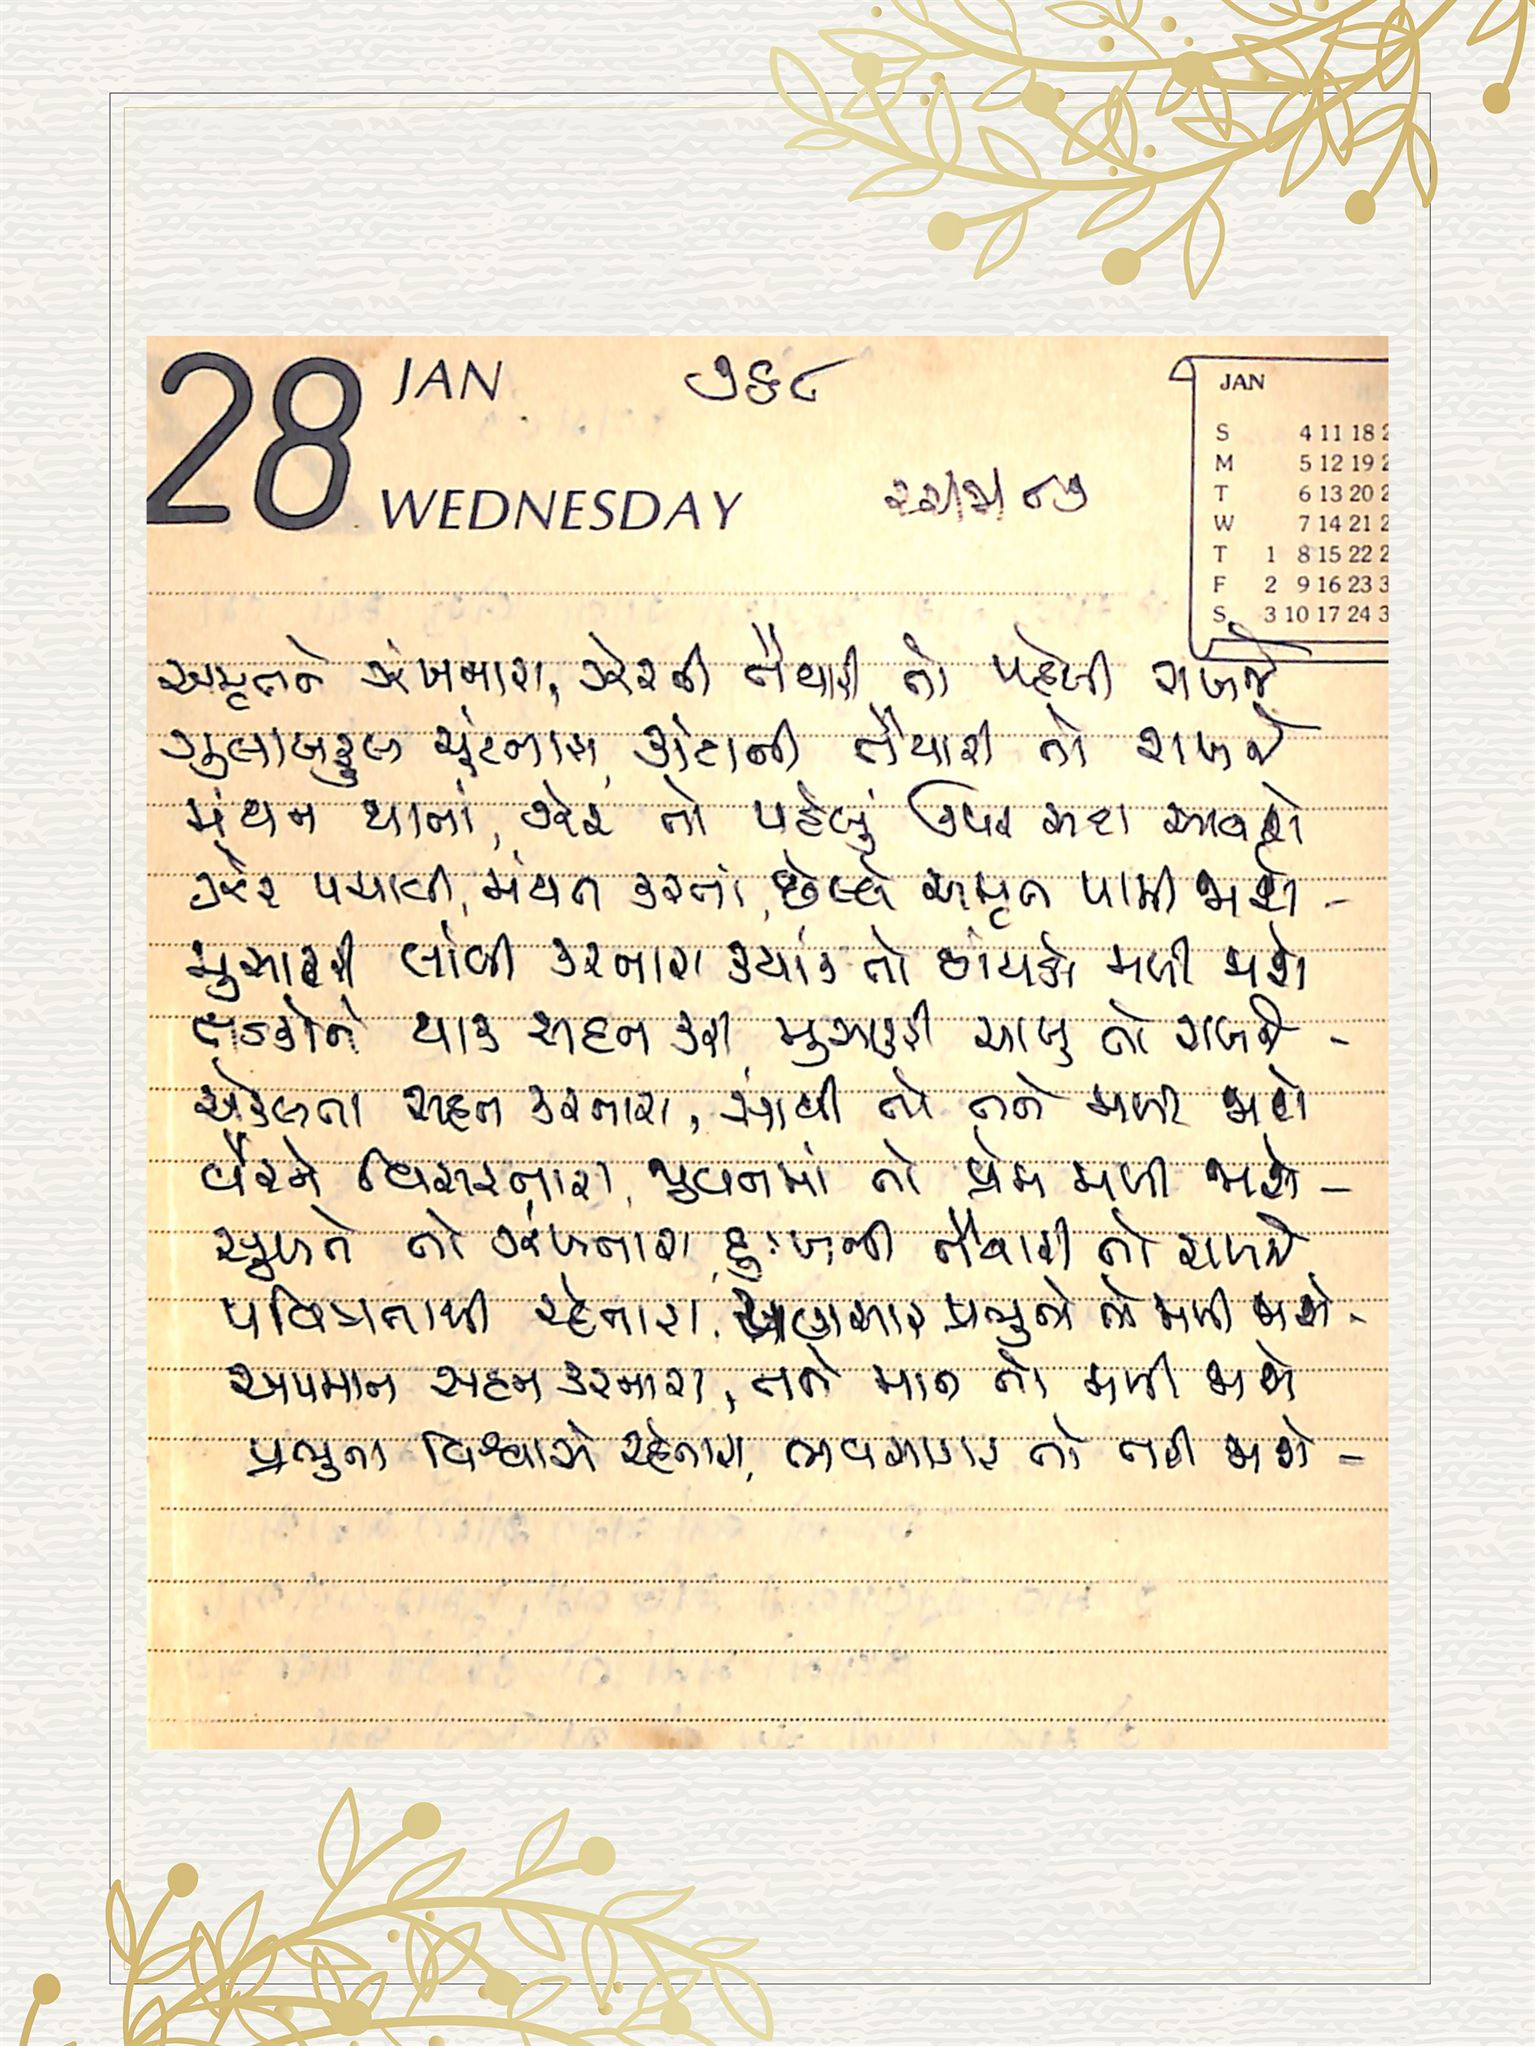 28 JAN
WEDNESDAY
JAN
S 4 11 18 2
M 5 12 19 2
T 6 13 20 2
W 7 14 21 2
T 1 8 15 22 2
F 2 9 16 23 3
S 3 10 17 24 3
અમૃતને ઝંખનારા, ઝેરની તૈયારી તો પહેલી રાખજે
ગુલાબફુલ ચૂંટનારા, કાંટાની તૈયારી તો રાખજે
મંથન થાતાં, ઝેર તો પહેલું ઉપર સદા આવશે
ઝેર પચાવી, મંથન કરતાં, છેલ્લે અમૃત પામી જાશે -
મુસાફરી લાંબી કરનારા ક્યાંક તો છાંયડો મળી જાશે
તડકોને થાક સહન કરી, મુસાફરી ચાલુ તો રાખજે -
એકલતા સહન કરનારા, સાથી તો તને મળી જાશે
વૈરને વિસરનારા, જીવનમાં તો પ્રેમ મળી જાશે -
સુખને તો ઝંખનારા, દુઃખની તૈયારી તો રાખજે
પવિત્રતાથી રહેનારા, અણસાર પ્રભુનો તો મળી જાશે -
અપમાન સહન કરનારા, તને માન તો મળી જાશે
પ્રભુના વિશ્વાસે રહેનારા, ભવસાગર તો તરી જાશે -